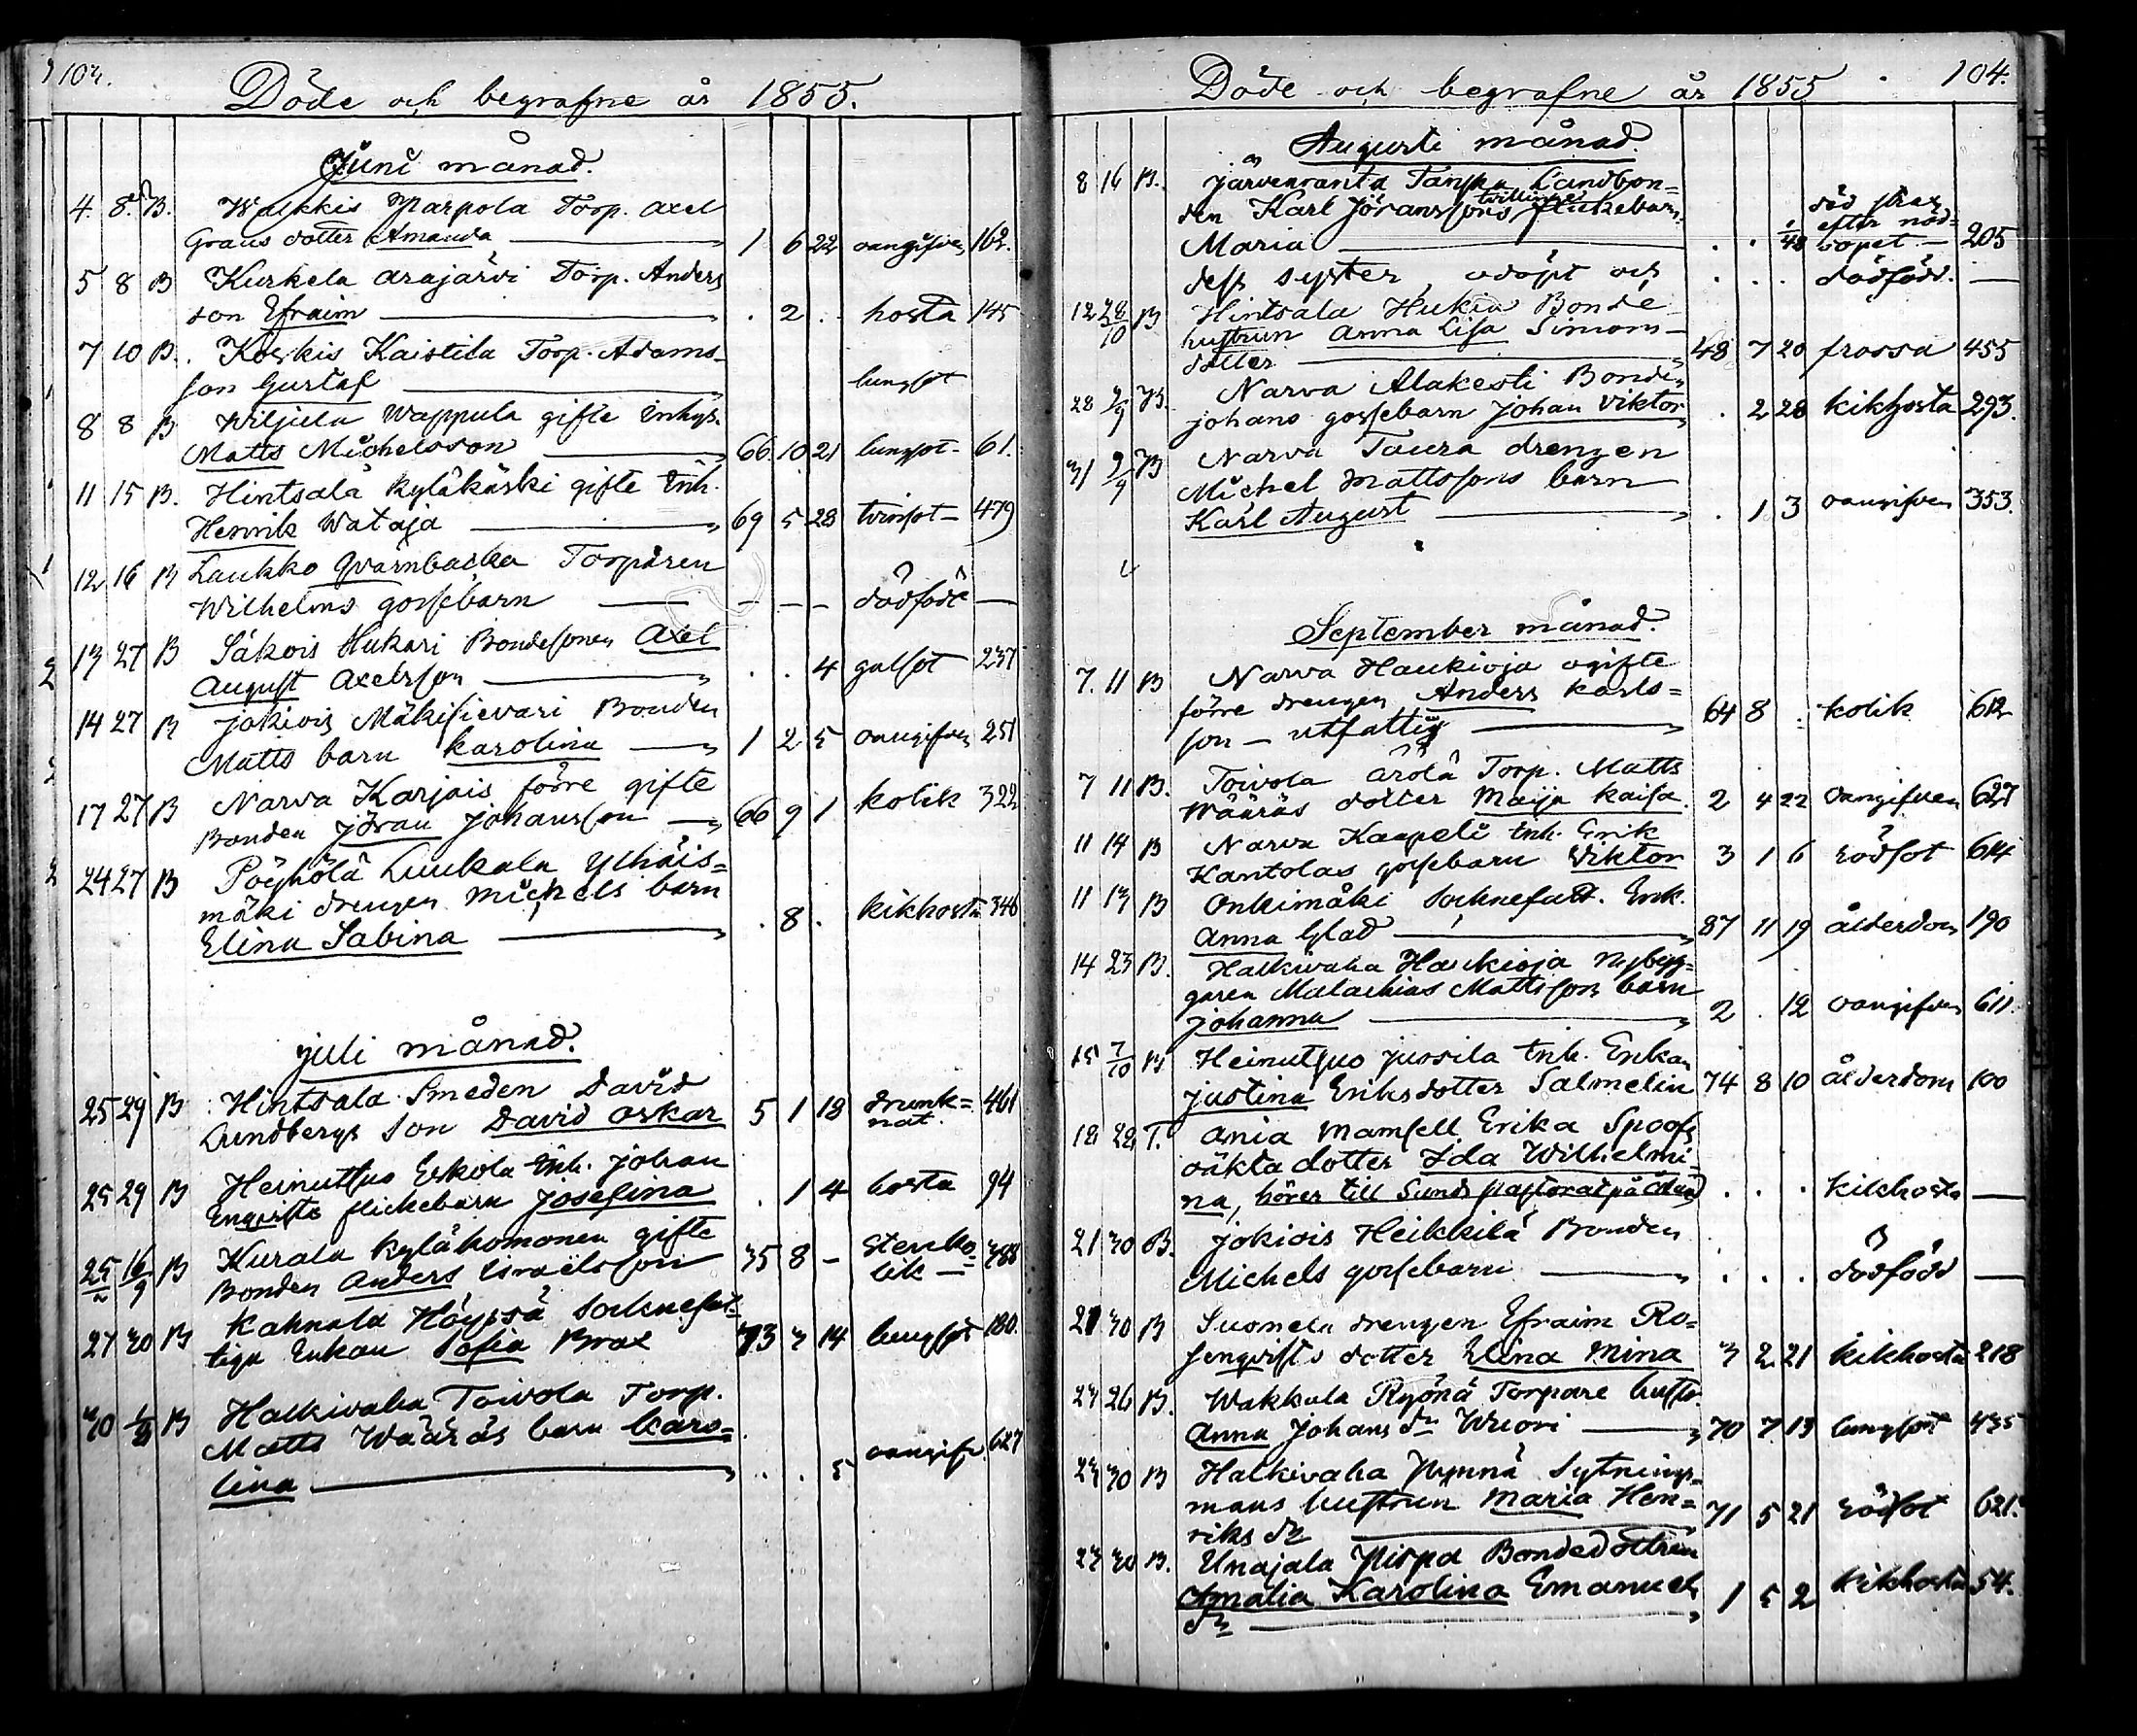 103.
Döde och begrafne år 1855.
Juni månad.
4. 8. B. Walkkis Yzarpola Torp. Axel
Graus dotter Amanda 1 6 22 oangifven 162.
5 8 B Kurkela Arajärvi Torp. Anders
son Efraim . 2 . . hosta 145
7 10 B. Koskis Kaistila Torp. Adams
son Gustaf lungsot
8 8 B Wiljula Wappula gifte Inhys.
Matts Michelsson 66 10 21 lungsot 61.
11 15 B. Hintsala Kyläkäski gifte Inh.
Henrik Wataja 69 5 28 tvinsot 479
12 16 B Laukko Qvarnbacka Torparen
Wilhelms gossebarn — — — dödfödt —
13 27 B Säkois Hukari Bondesonen Axel
August Axelsson . . 4 gulsot 237
14 27 B Jokiois Mäkisievari Bonden
Matts barn Karolina 1 2 5 oangifven 251
17 27 B Narva Karjais förre gifte
Bonden Jöran Johansson 66 9 1 kolik 322
24 27 B Pöyhölä Luukala Ylhäis=
mäki drengen Michels barn
Elina Sabina . 8 . kikhosta 346
Juli månad.
25 29 B Hintsala Smeden David
Lundbergs son David Oskar 5 1 18 drunk=
nat. 461
25 29 B Heinutsuo Eskola Inh. Johan
Enqvists flickebarn Josefina . 1 4 hosta 94
25 16/9 B Kurala Kylähomonen gifte
Bonden Anders Israelsson 35 8 – Stenko=
lik — 388
27 30 B Kahnala Höyssä Socknefat=
tiga Enkan Sofia Brax 73 3 14 lungsot 180.
30 B Halkivaha Toivola Torp.
Matts Wääräs barn Karo=
lina . . 5 oangifv. 627
Döde och begrafne år 1855 104.
Augusti månad.
8 16 B. Järvenranta Tanska Landbon=
den Karl Jöranssons tvilling flickebarn
Maria . . 1/48 död strax
efter nöd=
dopet — 205
dess syster, odöpt och . . . dödfödd. —
12 28/10 B Hintsala Hukia Bonde
hustrun Anna Lisa Simons-
dotter 48 7 20 frossa 455
28 2/9 B. Narva Alakesti Bonden
Johans gossebarn Johan Viktor . 2 28 kikhosta 293.
31 9/9 B Narva Taura drengen
Michel Mattssons barn
Karl August . 1 3 oangifven 353.
September månad.
7. 11 B Narva Haukioja ogifte
förre drengen Anders Karls=
son — utfattig 64 8 . kolik 612
7 11 B. Toivola Ärölä Torp. Matts
Wääräs dotter Maija Kaisa. 2 4 22 oangifven 627
11 14 B Narva Kaapeli Inh. Erik
Kantolas gossebarn Viktor 3 1 6 rödsot 614
11 13 B Onkimäki Socknefatt. Enk.
Anna Glad 87 11 19 ålderdom 190
14 23 B. Halkivaha Haukioja Nybyg=
garen Malachias Mattsson barn
Johanna 2 . 12 oangifven 611.
15 7/10 B Heinutsuo Jussila Inh. Enkan
Justina Eriksdotter Salmelin 74 8 10 ålderdom 100
18 22 T. Ania Mamsell Erika Spoofs
oäkta dotter Ida Wilhelmi=
na, hörer till Sunds pastorat på Åland . . . kikhosta —
21 30 B. Jokiois Heikkilä Bonden
Michels gossebarn . . . dödfödd —
21 30 B Suomela drengen Efraim Ro=
senqvists dotter Elina Mina 3 2 21 kikhosta 218
23 26 B. Wakkala Ryönä Torpare hustr.
Anna Johans dr Wuori 70 7 13 lungsot 435
23 30 B Halkivaha Yrjönä Sytnings=
mans hustrun Maria Hen=
riks dr 71 5 21 rödsot 621.
23 30 B. Unajala Piispa Bondedottren
Amalia Karolina Emanuels
dr 1 5 2 kikhosta 54.